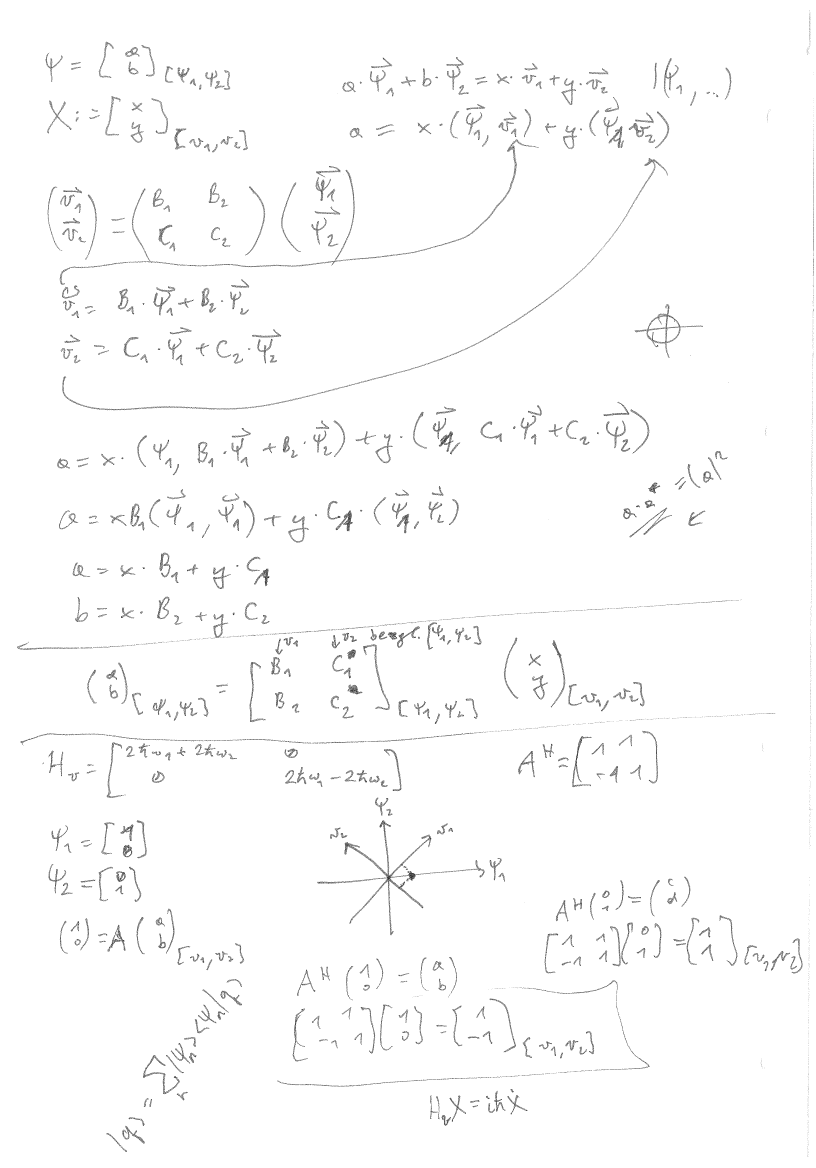 Ψ = [a b]_[Ψ₁,Ψ₂]
a·Ψ⃗₁ + b·Ψ⃗₂ = x·v⃗₁ + y·v⃗₂   |(Ψ₁, ...)
X := [x y]_[v₁,v₂]
a = x·(Ψ⃗₁, v⃗₁) + y·(Ψ⃗₁, v⃗₂)
(v⃗₁ v⃗₂) = (B₁ B₂ C₁ C₂) (Ψ⃗₁ Ψ⃗₂)
v⃗₁ = B₁·Ψ⃗₁ + B₂·Ψ⃗₂
v⃗₂ = C₁·Ψ⃗₁ + C₂·Ψ⃗₂
a = x·(Ψ₁, B₁·Ψ⃗₁ + B₂·Ψ⃗₂) + y·(Ψ⃗₁, C₁·Ψ⃗₁ + C₂·Ψ⃗₂)
a·a* = (a)²
a = xB₁(Ψ⃗₁, Ψ⃗₁) + y·C₁·(Ψ⃗₁, Ψ⃗₂)
a = x·B₁ + y·C₁
b = x·B₂ + y·C₂
↓v₁ ↓v₂ bezgl. [Ψ₁,Ψ₂]
(a b)_[Ψ₁,Ψ₂] = [B₁ C₁ B₂ C₂]_[Ψ₁,Ψ₂] (x y)_[v₁,v₂]
H_v = [2ħω₁ + 2ħω₂ 0 0 2ħω₁ − 2ħω₂]
Aᴴ = [1 1 −1 1]
Ψ₁ = [1 0]
Ψ₂ = [0 1]
(1 0) = A (a b)_[v₁,v₂]
Ψ₂
v₂
v₁
Ψ₁
Aᴴ (0 1) = (c d)
[1 1 −1 1][0 1] = [1 1]_[v₁,v₂]
Aᴴ (1 0) = (a b)
[1 1 −1 1][1 0] = [1 −1]_[v₁,v₂]
|q⟩ = Σₙ |Ψₙ⟩⟨Ψₙ|q⟩
H_v X = iħẊ